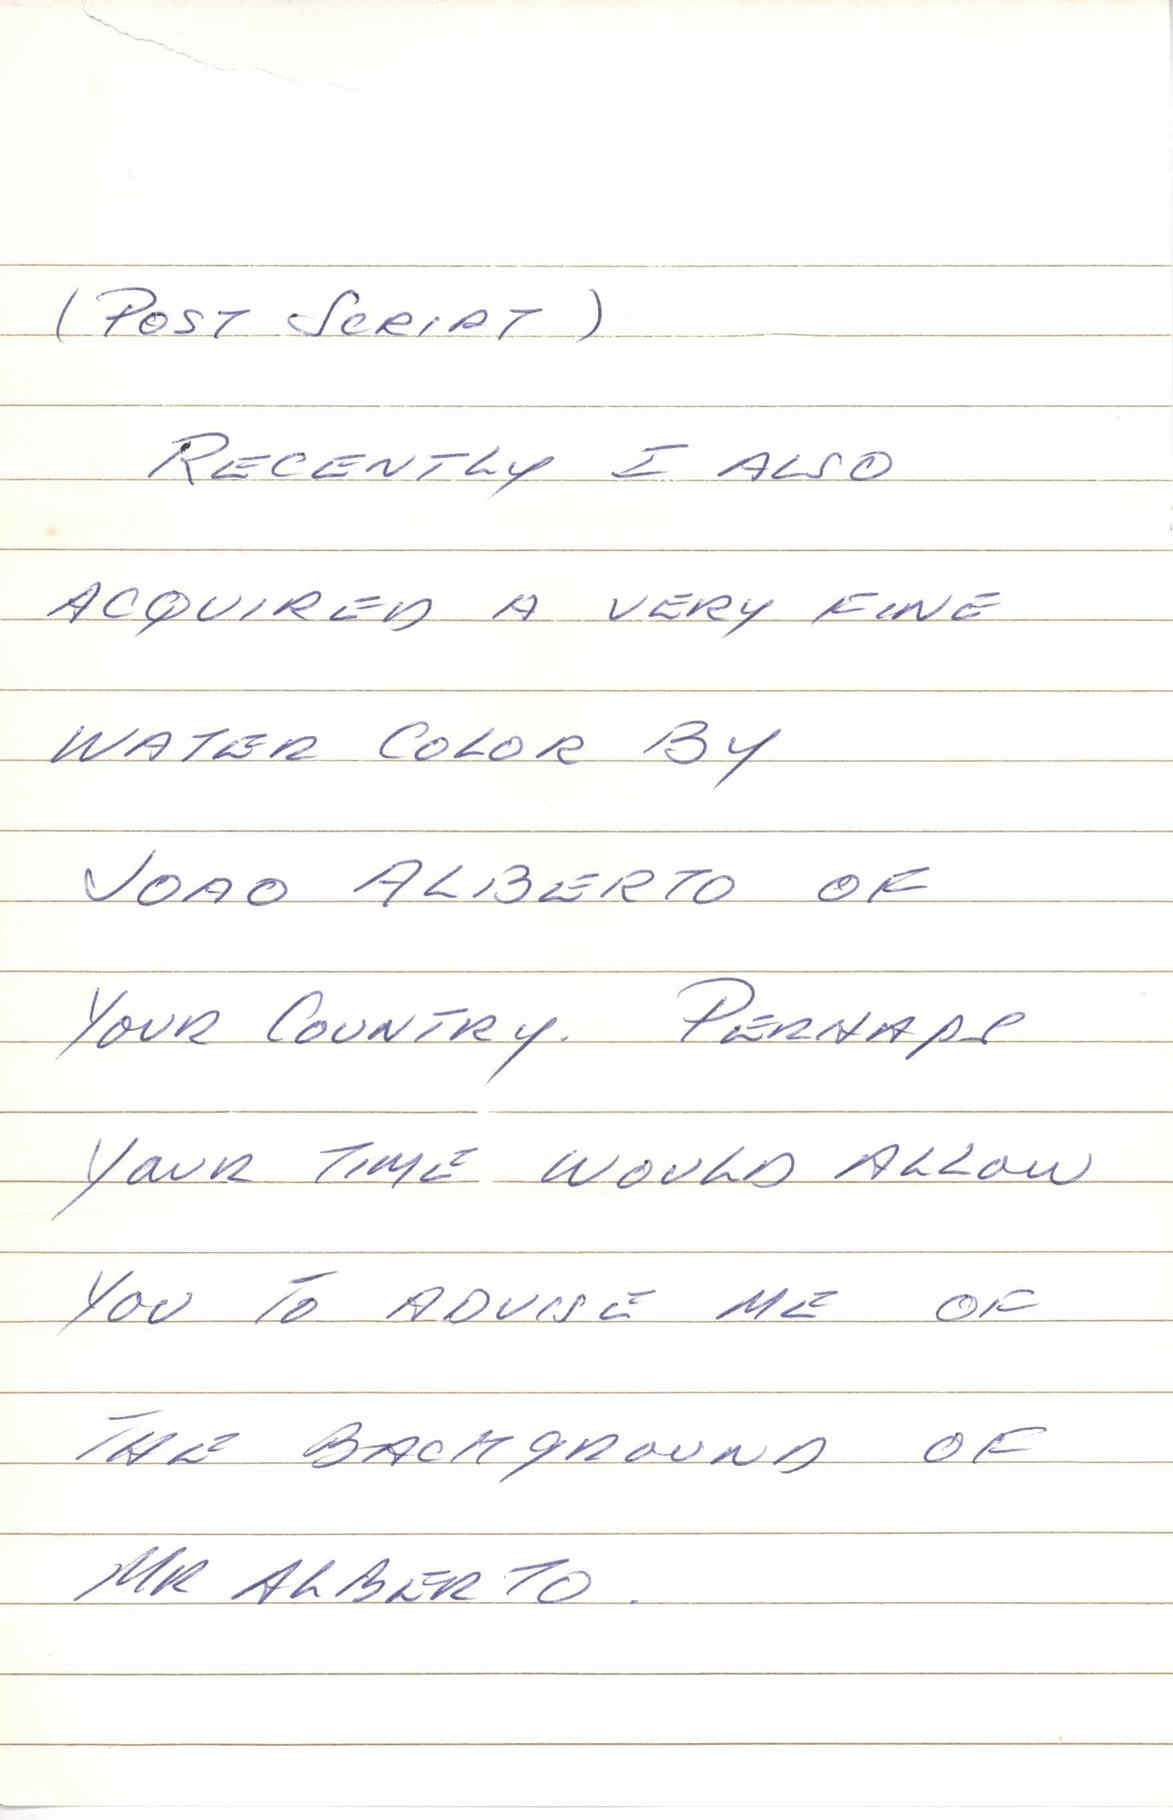 (POST SCRIPT)
RECENTLY I ALSO
ACQUIRED A VERY FINE
WATER COLOR BY
JOAO ALBERTO OF
YOUR COUNTRY. PERHAPS
YOUR TIME WOULD ALLOW
YOU TO ADVISE ME OF
THE BACKGROUND OF
MR ALBERTO.